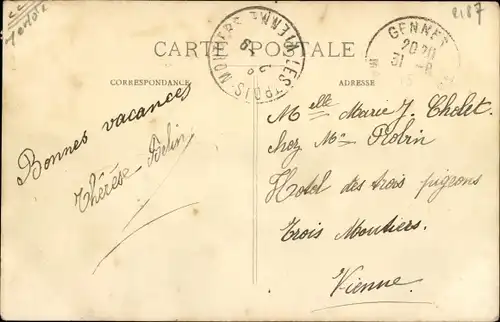 2187
CARTE POSTALE
CORRESPONDANCE
ADRESSE
LES TROIS-MOUTIERS VIENNE
GENNES
20 20
31 -8
Bonnes vacances
Thérèse Belin
Melle Marie J. Cholet.
chez Mme Robin
Hotel des trois pigeons
Trois Moutiers.
Vienne.